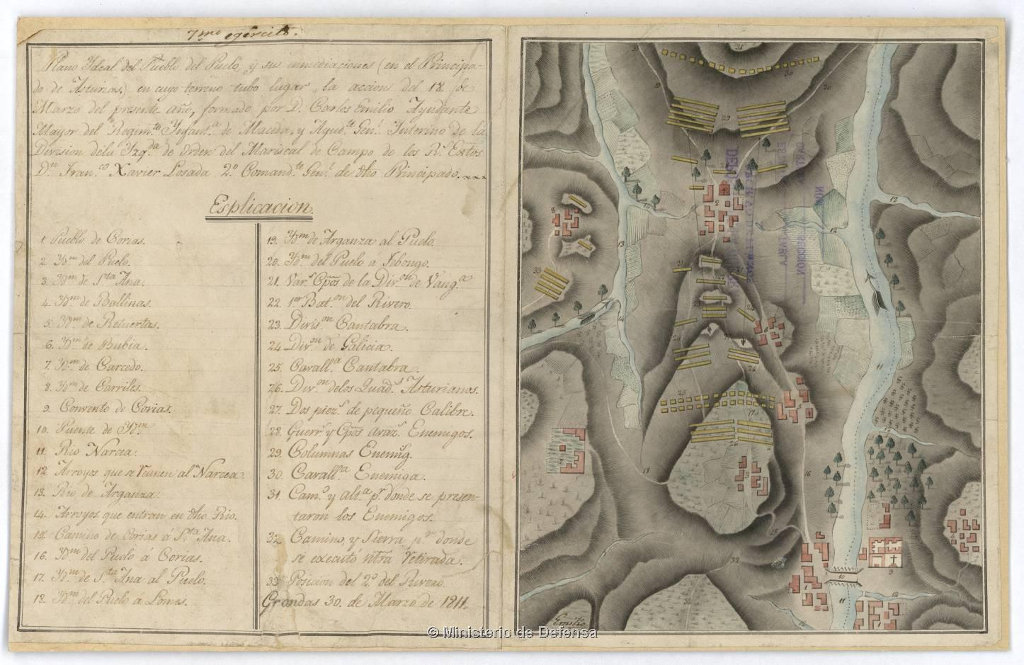 7mo egército.
Plano Ideal del Pueblo del Puelo, y sus inmediaciones (en el Principa-
do de Asturias) en cuyo terreno tubo lugar la accion del 18 de
Marzo del presente año, formado por D. Carlos Emilio Ayudante
Mayor del Regimto Infanta de Maceda, y Ayute Genl Interino de la
Division de la Izqda de orden del Mariscal de Campo de los Rs Extos
Dn Franco Xavier Losada 2o Comandte Genl de dho Principado.
Esplicacion.
1. Pueblo de Corias.
2. Ydm del Puelo.
3. Ydm de Sta Ana.
4. Ydm de Ballinas.
5. Ydm de Retuertas.
6. Ydm de Bubia.
7. Ydm de Carcedo.
8. Ydm de Carriles.
9. Convento de Corias.
10. Puente de Ydm
11. Rio Narcea.
12. Arroyos que se reunen al Narcea.
13. Rio de Arganza.
14. Arroyos que entran en dho Rio.
15. Camino de Corias á Sta Ana.
16. Ydm del Puelo á Corias.
17. Ydm de Sta Ana al Puelo.
18. Ydm del Puelo á Lomes.
19. Ydm de Arganza al Puelo.
20. Ydm del Puelo a
21. Vars Cpos de la Divon de
22. 1er Batn del Rivero.
23. Divisn Cantabra.
24. Divn de Galicia.
25. Caballa Cantabra.
26. Divn de los Quads Asturianos.
27. Dos piezs de pequeño Calibre.
28. Guerrs y Cpos Avanzs Enemigos.
29. Columnas Enemigs
30. Caballra Enemiga.
31. Cams y alts pr donde se presen-
taron los Enemigos.
32. Camino, y Sierra pr donde
se executó ntra Retirada.
33. Posicion del 2o del Rivero.
Grandas 30. de Marzo de 1811.
Emilio
© Ministerio de Defensa